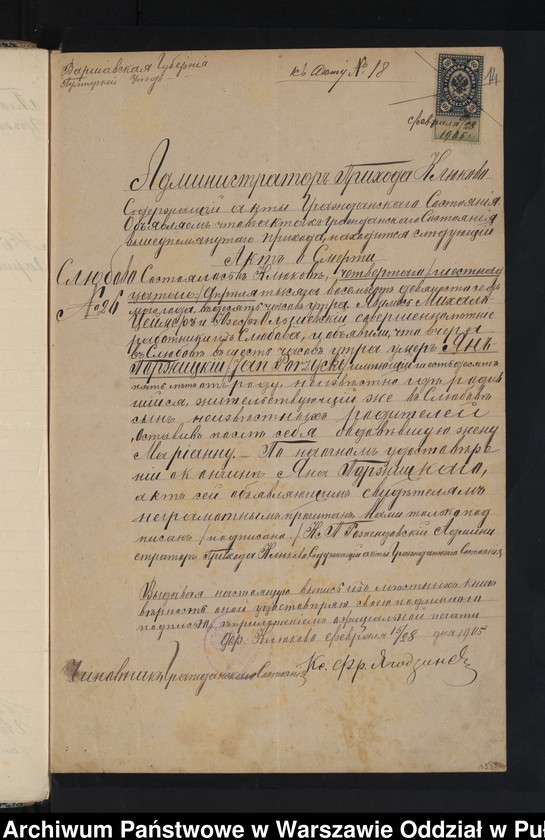 Варшавская Губернія
къ акту № 18
14
февраля 15/28
1905 г.
Администраторъ Прихода Клюково
Содержащій акты Гражданскаго Состоянія
Объявляемъ что въ актахъ Гражданскаго Состоянія
вышеупомянутаго прихода, находится слѣдующій
Актъ о Смерти
Слюбово
№ 26
Состоялось въ Клюковѣ, четвертаго /шестнад
цатаго/ Апрѣля тысяча восемьсотъ девяносто
года, въ десять часовъ утра. Явились Михаилъ
и совершеннолѣтніе
работники изъ Слюбова, и объявили, что вчера
въ Слюбовѣ въ шесть часовъ утра умеръ Янъ
Паржицкій /Jan Parzycki/ имѣющій шестьдесятъ
пять лѣтъ отъ роду, неизвѣстно гдѣ родив
шійся, жительствующій же въ Слюбовѣ
сынъ неизвѣстныхъ родителей
Оставивъ послѣ себя овдовѣвшую жену
Маріанну. — По удостовѣре
ніи о кончинѣ Яна Паржицкаго,
актъ сей объявляющимъ свидѣтелямъ
неграмотнымъ прочитанъ Нами только под
писанъ. /подписано/ Админи
страторъ Прихода Клюково Содержащій акты Гражданскаго Состоянія
Выдавая настоящую выпись изъ мѣстныхъ книгъ
вѣрность оной удостовѣряю своею
подписью, съ приложеніемъ оффиціальной печати
Клюково февраля 15/28 дня 1905
Чиновникъ Гражданскаго Состоянія Кс. Фр.
Archiwum Państwowe w Warszawie Oddział w Pu